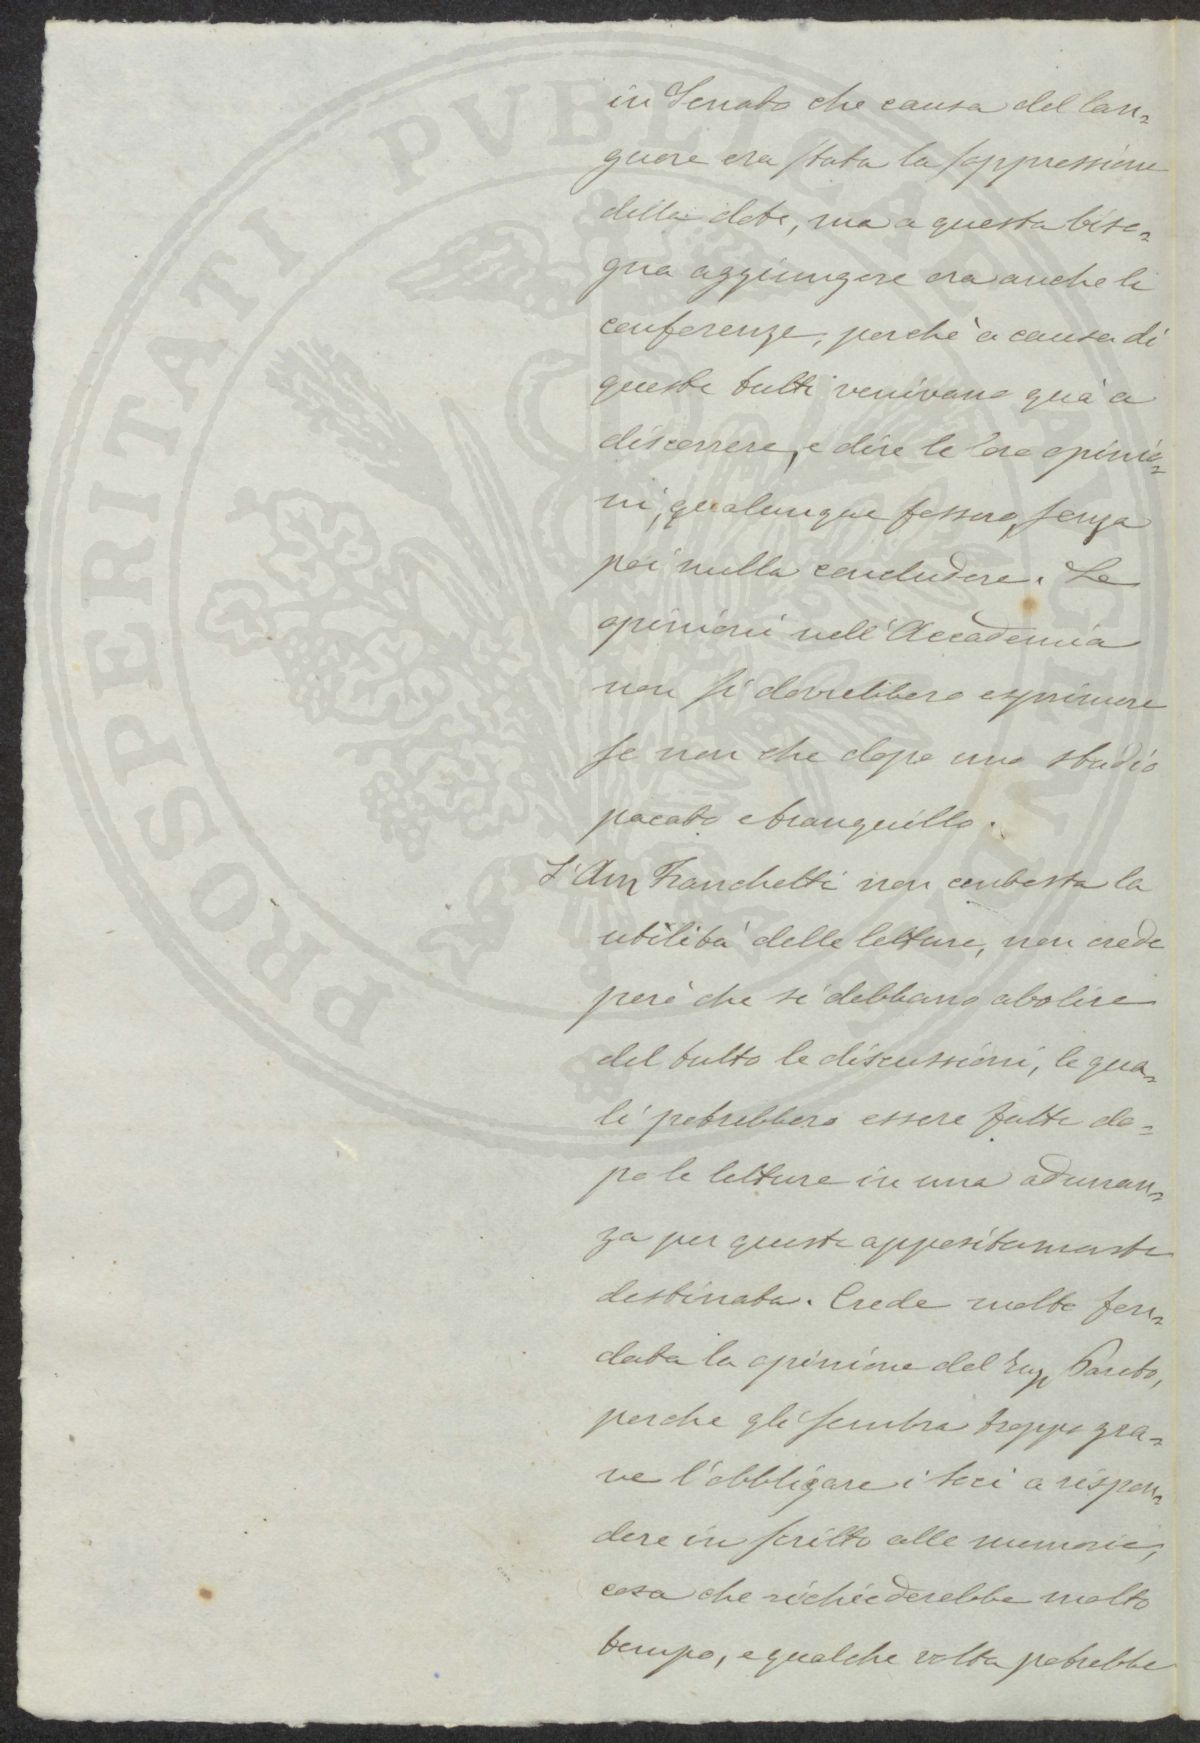 in Senato che causa del lan=
guore era stata la soppressione
della dote, ma a questa biso=
gna aggiungere ora anche le
conferenze, perchè a causa di
queste tutti venivano quà a
discorrere, e dire le loro opinio=
ni, qualunque fossero, senza
poi nulla concludere. Le
opinioni nell'Accademia
non si dovrebbero esprimere
se non che dopo uno studio
pacato e tranquillo.
L'Avv Franchetti non contesta la
utilità delle letture, non crede
però che si debbano abolire
del tutto le discussioni, le qua=
li potrebbero essere fatte do=
po le letture in una adunan=
za per queste appositamente
destinata. Crede molto fon=
data la opinione del Ing Pareto,
perche gli sembra troppo gra=
ve l'obbligare i soci a rispon=
dere in scritto alle memorie,
cosa che richiederebbe molto
tempo, e qualche volta potrebbe
PROSPERITATI PVBLICAE AVGENDAE